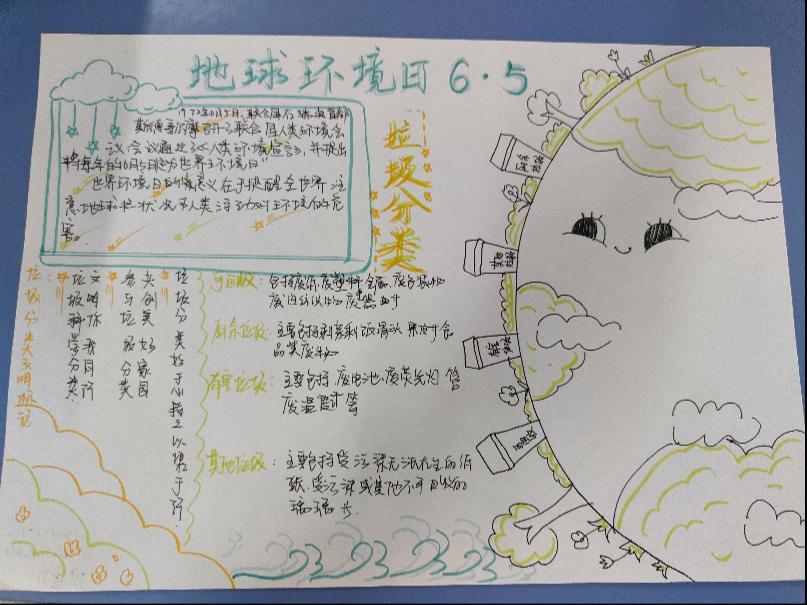 地球环境日 6·5
1972年6月5日,联合国在瑞典首都
斯德哥尔摩召开了联合国人类环境会
议,会议通过了《人类环境宣言》,并提出
将每年的6月5日定为世界环境日
世界环境日的意义在于提醒全世界注
意地球状况和人类活动对环境的危
害。
垃圾分类
可回收:包括废纸,废塑料,金属,废包装物
厨余垃圾:主要包括剩菜剩饭骨头果皮等食
品类废物
有害垃圾:主要包括,废电池,废荧光灯管
废温度计等
其他垃圾:主要包括受污染无法再生的纸
张,受污染或其他不可回收的
玻璃
垃圾分类文明标语:
文明你我同行
垃圾科学分类
共创美好家园
参与垃圾分类
垃圾分类始于心指之以恒于行
厨余垃圾
其他垃圾
有害垃圾
可回收